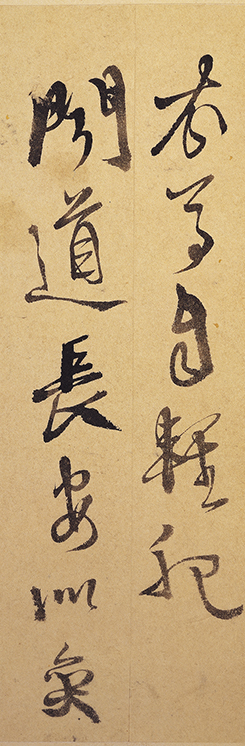 衣馬自輕肥
聞道長安似奕